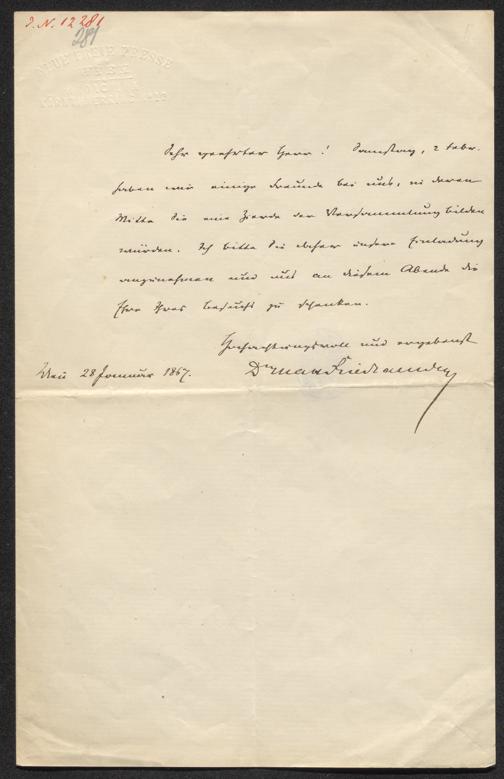 J. N. 12281
281
NEUE FREIE PRESSE
Sehr geehrter Herr! Samstag, 2 Febr.
haben wir einige Freunde bei uns, in deren
Mitte Sie eine Zierde der Versammlung bilden
würden. Ich bitte Sie daher unsere Einladung
anzunehmen und uns an diesem Abende die
Ehre Ihres Besuchs zu schenken.
Hochachtungsvoll und ergebenst
Wien 28 Januar 1867. Dr Max Friedlaender